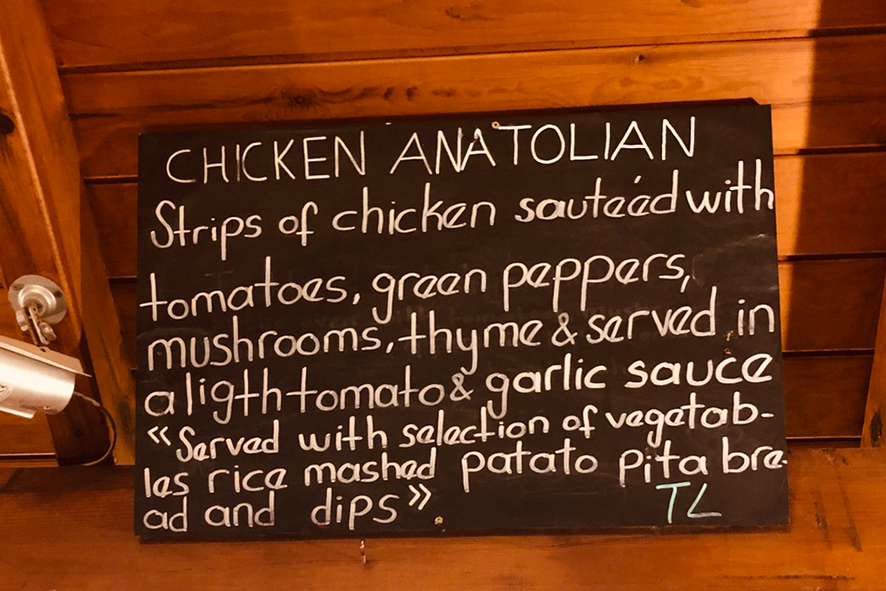 CHICKEN ANATOLIAN
Strips of chicken sauteéd with
tomatoes, green peppers,
mushrooms, thyme & served in
a ligth tomato & garlic sauce
"Served with selection of vegetab-
les rice mashed patato pita bre-
ad and dips".
TL